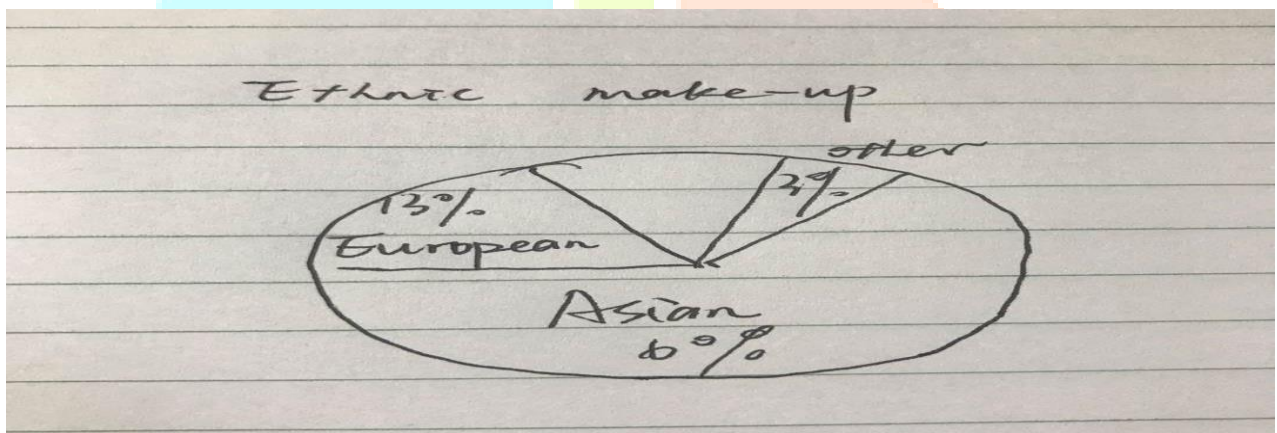 Ethnic make-up
other
3%
13%
European
Asian
60%